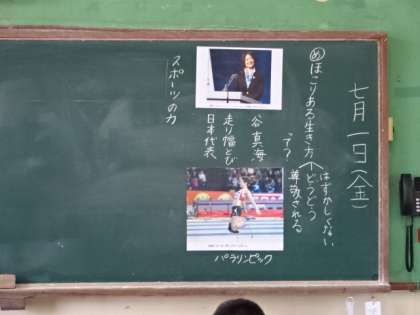 七月一日(金)
めほこりある生き方
って?
はずかしくない
どうどう
尊敬される
谷真海
走り幅とび
日本代表
パラリンピック
スポーツの力